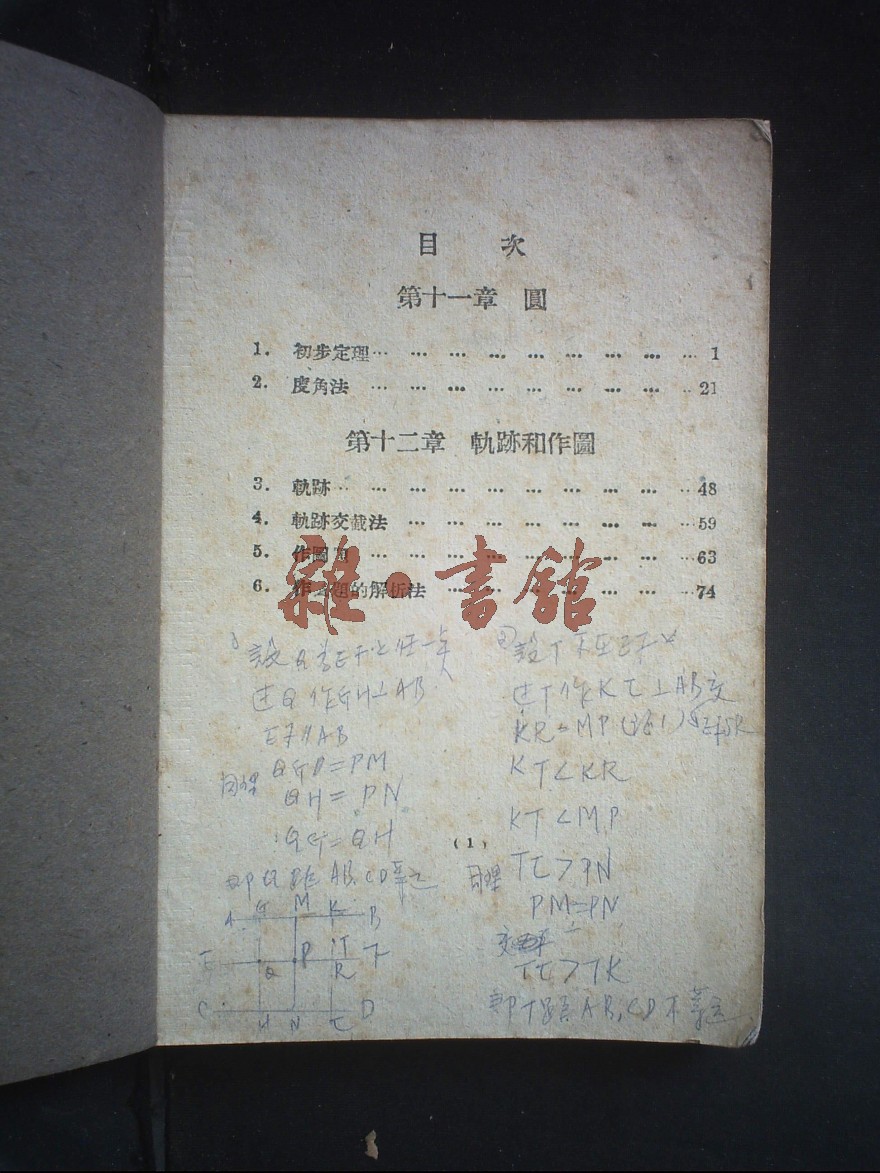 目 次
第十一章 圓
1. 初步定理… … … … … … … … … 1
2. 度角法 … … … … … … … … … 21
第十二章 軌跡和作圖
3. 軌跡… … … … … … … … … … 48
4. 軌跡交截法 … … … … … … … … 59
5. 作圖題 … … … … … … … … … 63
6. 作圖題的解析法 … … … … … … … 74
雜·書館
設Q為EF上任一點
过Q作GH⊥AB
EF∥AB
=PM
同理 QH=PN
QG=QH
即Q距AB,CD等远
設T不在EF上
过T作KL⊥AB交
KR=MP
KT<KR
KT<MP
(1)
同理 TL>PN
PM=PN
TL>TK
即T距AB,CD不等远
A G M K B
E Q P T R F
C H N L D